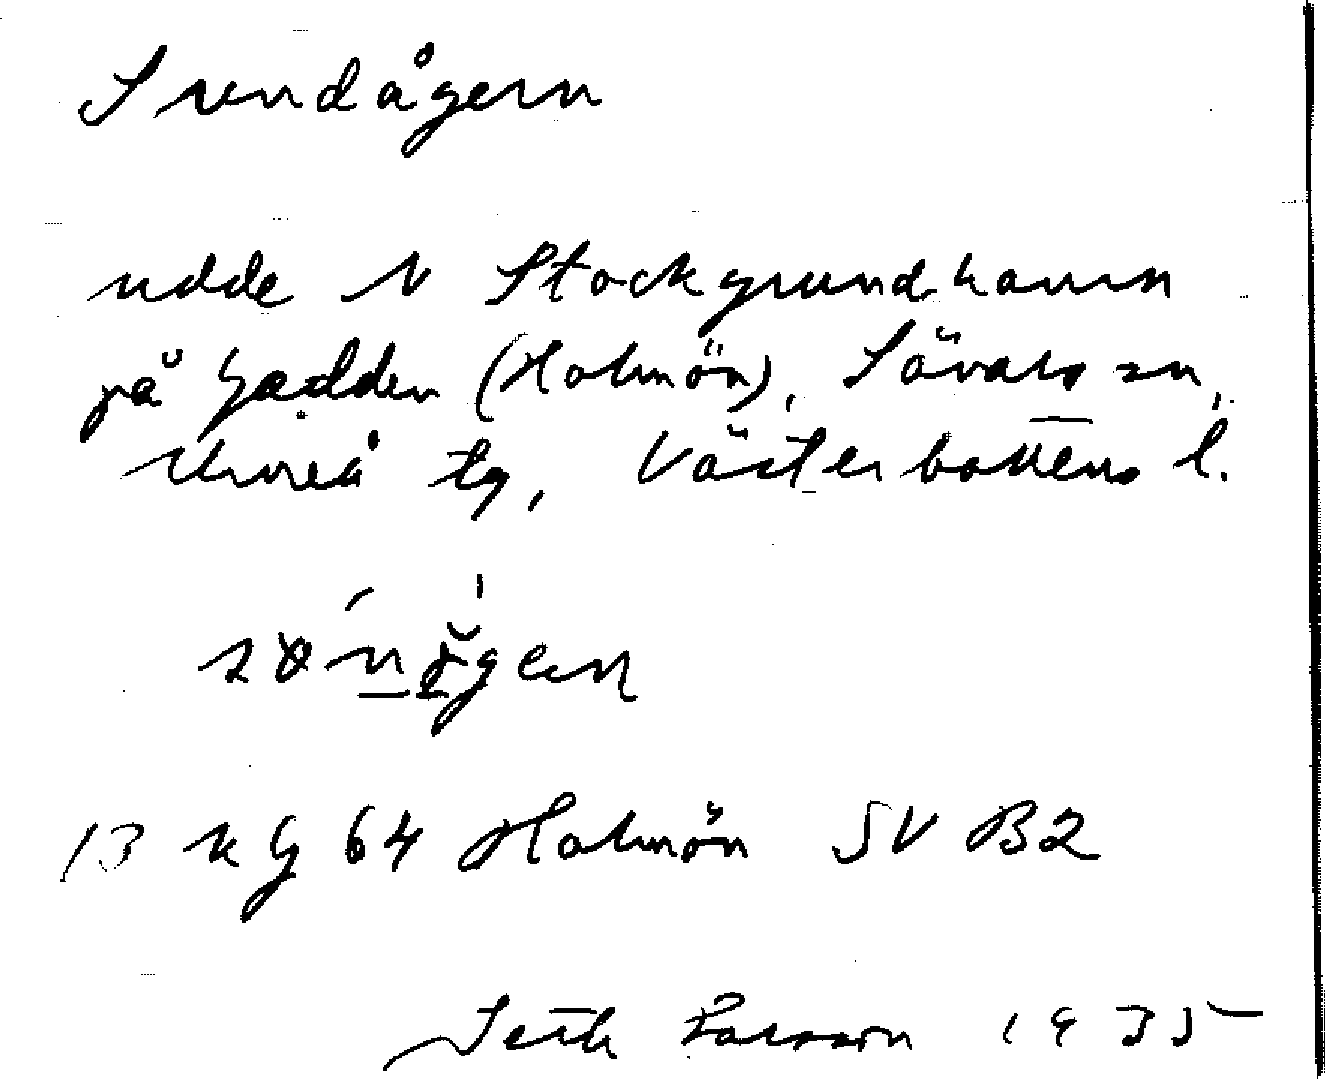 Sundågern
udde N Stockgrundhamn
på Gadden (Holmön), Sävars sn,
Umeå tg, Västerbottens l.
13 kG 64 Holmön SV B2
Seth Larsson 1935